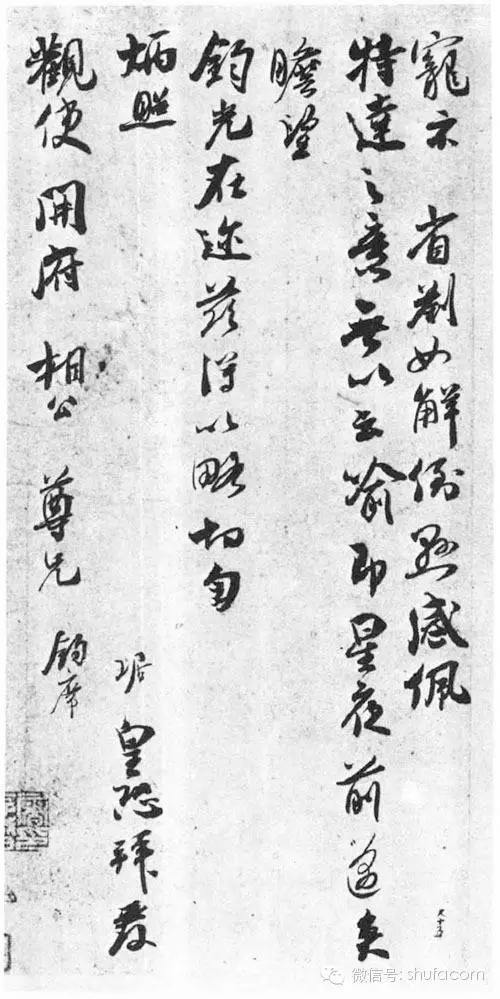 寵示 省劄如解倒懸感佩
特達之意無以云喻即星夜前邁矣
瞻望
鈞光在迩茲得以略切匄
炳照 琚皇恐拜覆
觀使 開府 相公 尊兄 鈞席
微信号: shufacom